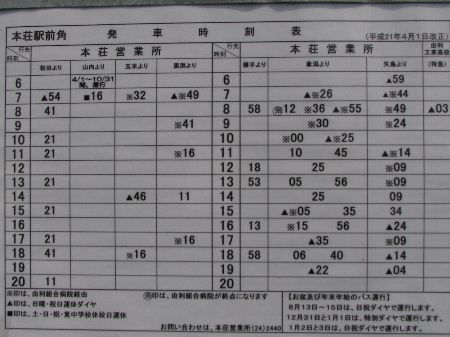 本荘駅前角 発車時刻表 (平成21年4月1日改正)
行先 時刻 本荘営業所 行先 時刻 本荘営業所 由利工業高校
秋田より 山内より 玉米より 横手より 象潟より 矢島より (特急)
6 4/1～10/31間、運行 6 ▲59
7 ▲54 ■16 ※32 ▲※49 7 ▲※26 ▲※44
8 41 8 58 ※12 ※36 ▲※55 ※49 ▲03
9 ※41 9 ※30 ※24
10 21 10 ※00 ▲※25
11 21 ※16 11 10 45 ▲※14
12 12 18 25 ※09
13 21 13 53 05 56 ※09
14 ▲46 11 14 25 09
15 21 15 ▲※05 35 34
16 16 13 ※15 56 ※24
17 21 ※16 17 ▲35 ※09
18 41 ※16 18 58 06 40 ▲14
19 19 ▲22 ▲04
20 11 20
※印は、由利組合病院経由 ※印は、由利組合病院が終点になります
▲印は、日曜・祝日運休ダイヤ
■印は、土・日・祝・東中学校休校日運休
お問い合わせは、本荘営業所(24)2440
【お盆及び年末年始のバス運行】
8月13日～15日は、日祝ダイヤで運行します。
12月31日と1月1日は、特別ダイヤで運行します。
1月2日と3日は、日祝ダイヤで運行します。